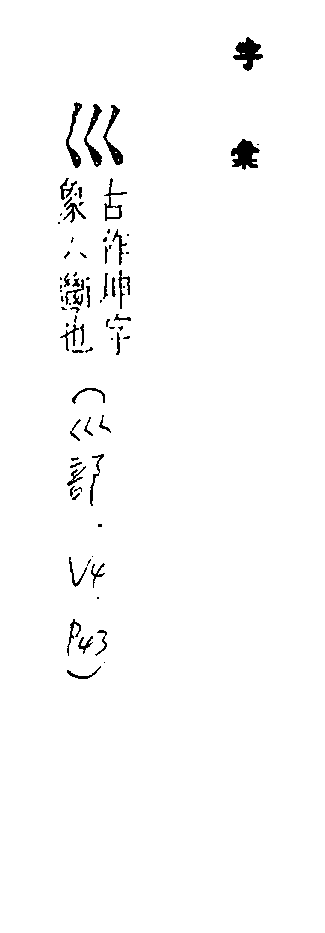 字彙
巛
古作坤字
象六斷也
(巛部.V4.P43)